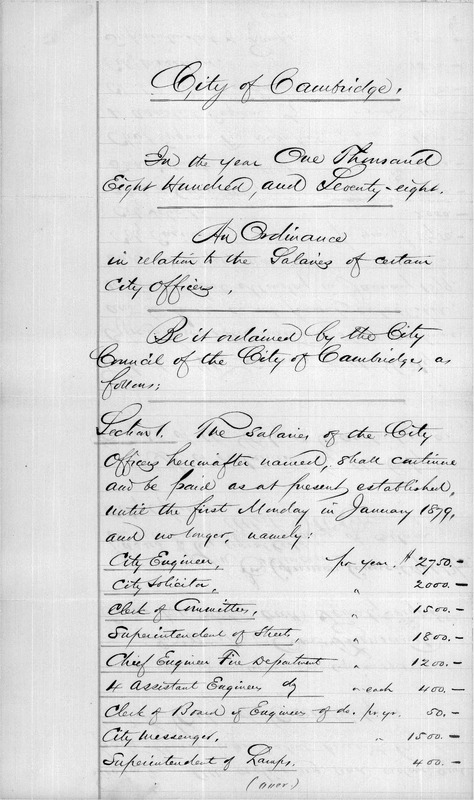 City of Cambridge.
In the year One Thousand
Eight Hundred, and Seventy-eight.
An Ordinance
in relation to the Salaries of certain
City Officers.
Be it ordained by the City
Council of the City of Cambridge, as
follows;
Section 1. The salaries of the City
Officers hereinafter named, shall continue
and be paid as at present established,
until the first Monday in January 1879,
and no longer, namely:
City Engineer, per year. $ 2750.—
City Solicitor, " 2000.—
Clerk of Committees, " 1500.—
Superintendent of Streets, " 1800.—
Chief Engineer Fire Department " 1200.—
4 Assistant Engineers do " each 400.—
Clerk of Board of Engineers of do. pr yr. 50.—
City Messenger, " 1500.—
Superintendent of Lamps. 400.—
(over)